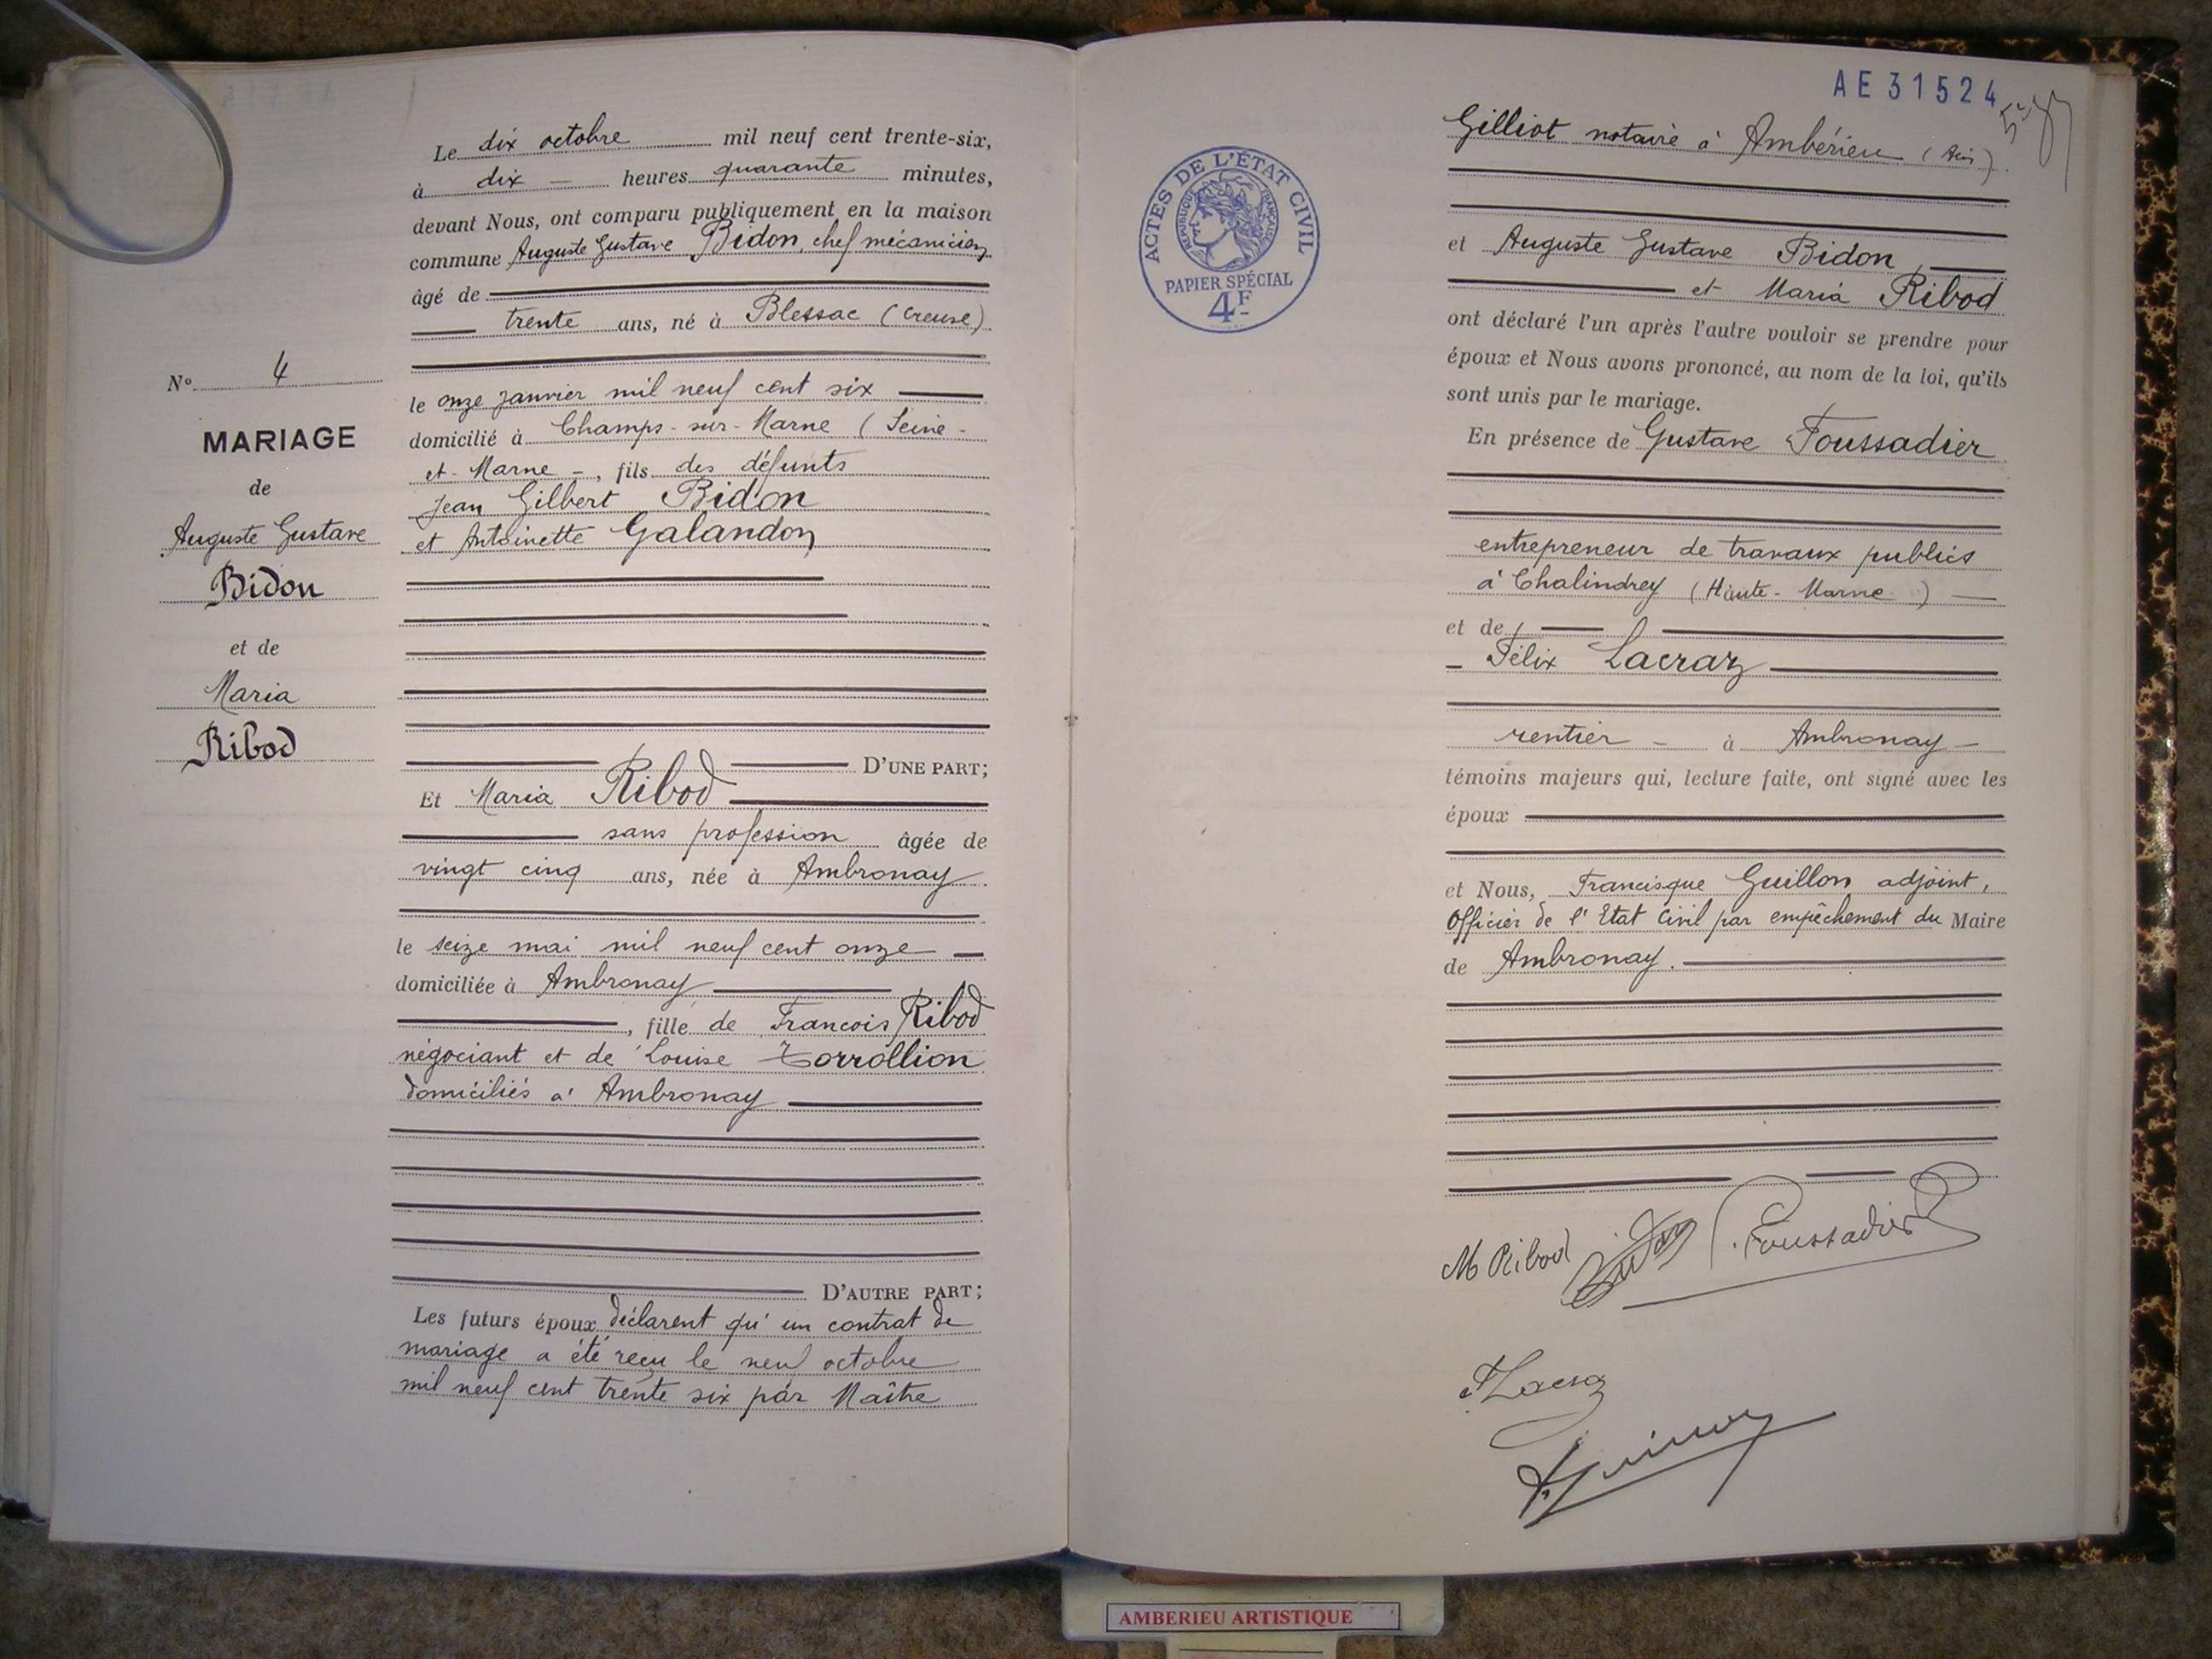 Le dix octobre mil neuf cent trente-six,
à dix heures quarante minutes,
devant Nous, ont comparu publiquement en la maison
commune Auguste Gustave Bidon, chef mécanicien
âgé de
trente ans, né à Blessac (Creuse)
le onze janvier mil neuf cent six
domicilié à Champs-sur-Marne (Seine-
et-Marne -, fils des défunts
Jean Gilbert Bidon
et Antoinette Galandon
D'UNE PART;
Et Maria Ribod
sans profession âgée de
vingt cinq ans, née à Ambronay
le seize mai mil neuf cent onze
domiciliée à Ambronay
, fille de Francois Ribod
négociant et de Louise Torrollion
domiciliés à Ambronay
D'AUTRE PART;
Les futurs époux déclarent qu'un contrat de
mariage a été reçu le neuf octobre
mil neuf cent trente six par Maître
Nº 4
MARIAGE
de
Auguste Gustave
Bidon
et de
Maria
Ribod
AE31524
ACTES DE L'ÉTAT CIVIL
RÉPUBLIQUE FRANÇAISE
PAPIER SPÉCIAL
4F
Gilliot notaire à Ambérieu (Ain).
et Auguste Gustave Bidon
et Maria Ribod
ont déclaré l'un après l'autre vouloir se prendre pour
époux et Nous avons prononcé, au nom de la loi, qu'ils
sont unis par le mariage.
En présence de Gustave Foussadier
entrepreneur de travaux publics
à Chalindrey (Haute-Marne)
et de
Félix Lacraz
rentier à Ambronay
témoins majeurs qui, lecture faite, ont signé avec les
époux
et Nous, Francisque Guillon adjoint,
Officier de l'Etat Civil par empêchement du Maire
de Ambronay.
M Ribod Bidon Foussadier
AMBERIEU ARTISTIQUE